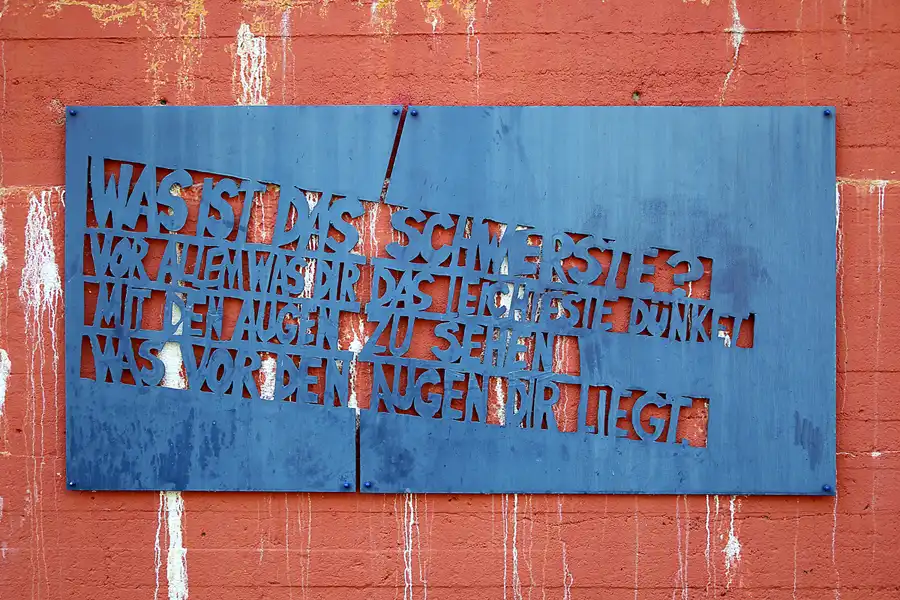 WAS IST DAS SCHWERSTE?
VOR ALLEM WAS DIR DAS LEICHTESTE DÜNKET
MIT DEN AUGEN ZU SEHEN
WAS VOR DEN AUGEN DIR LIEGT.